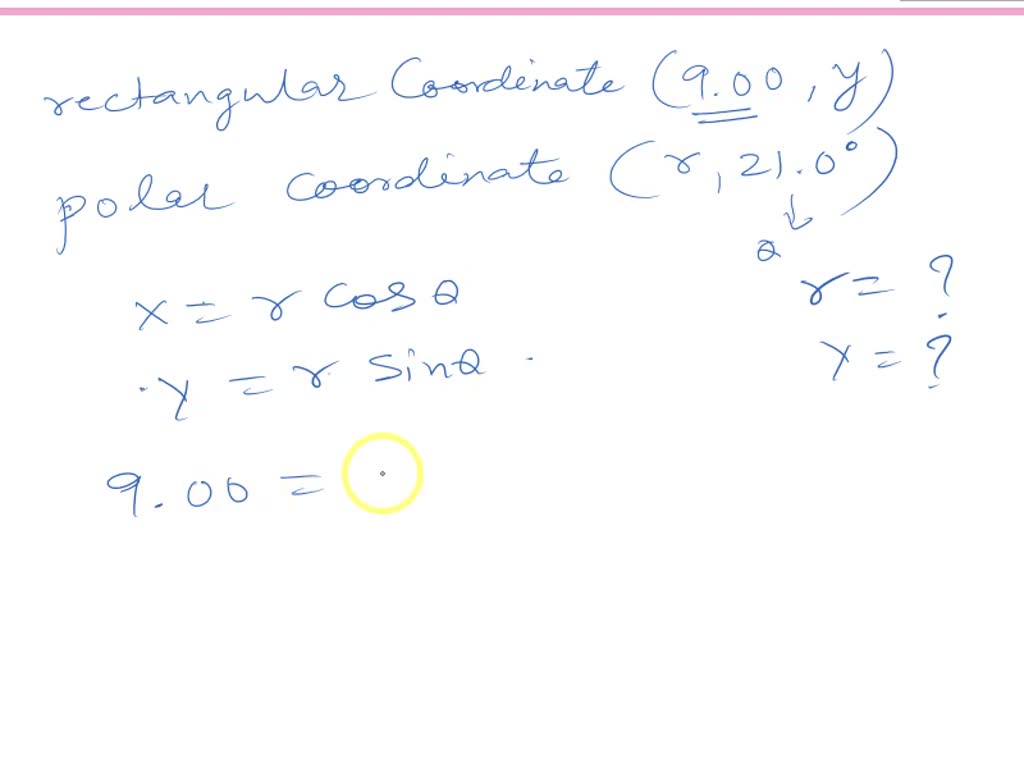 rectangular Coordinate (9.00, y)
polar coordinate (r, 21.0°)
↓
θ
x = r cos θ
y = r sinθ
r = ?
y = ?
9.00 =